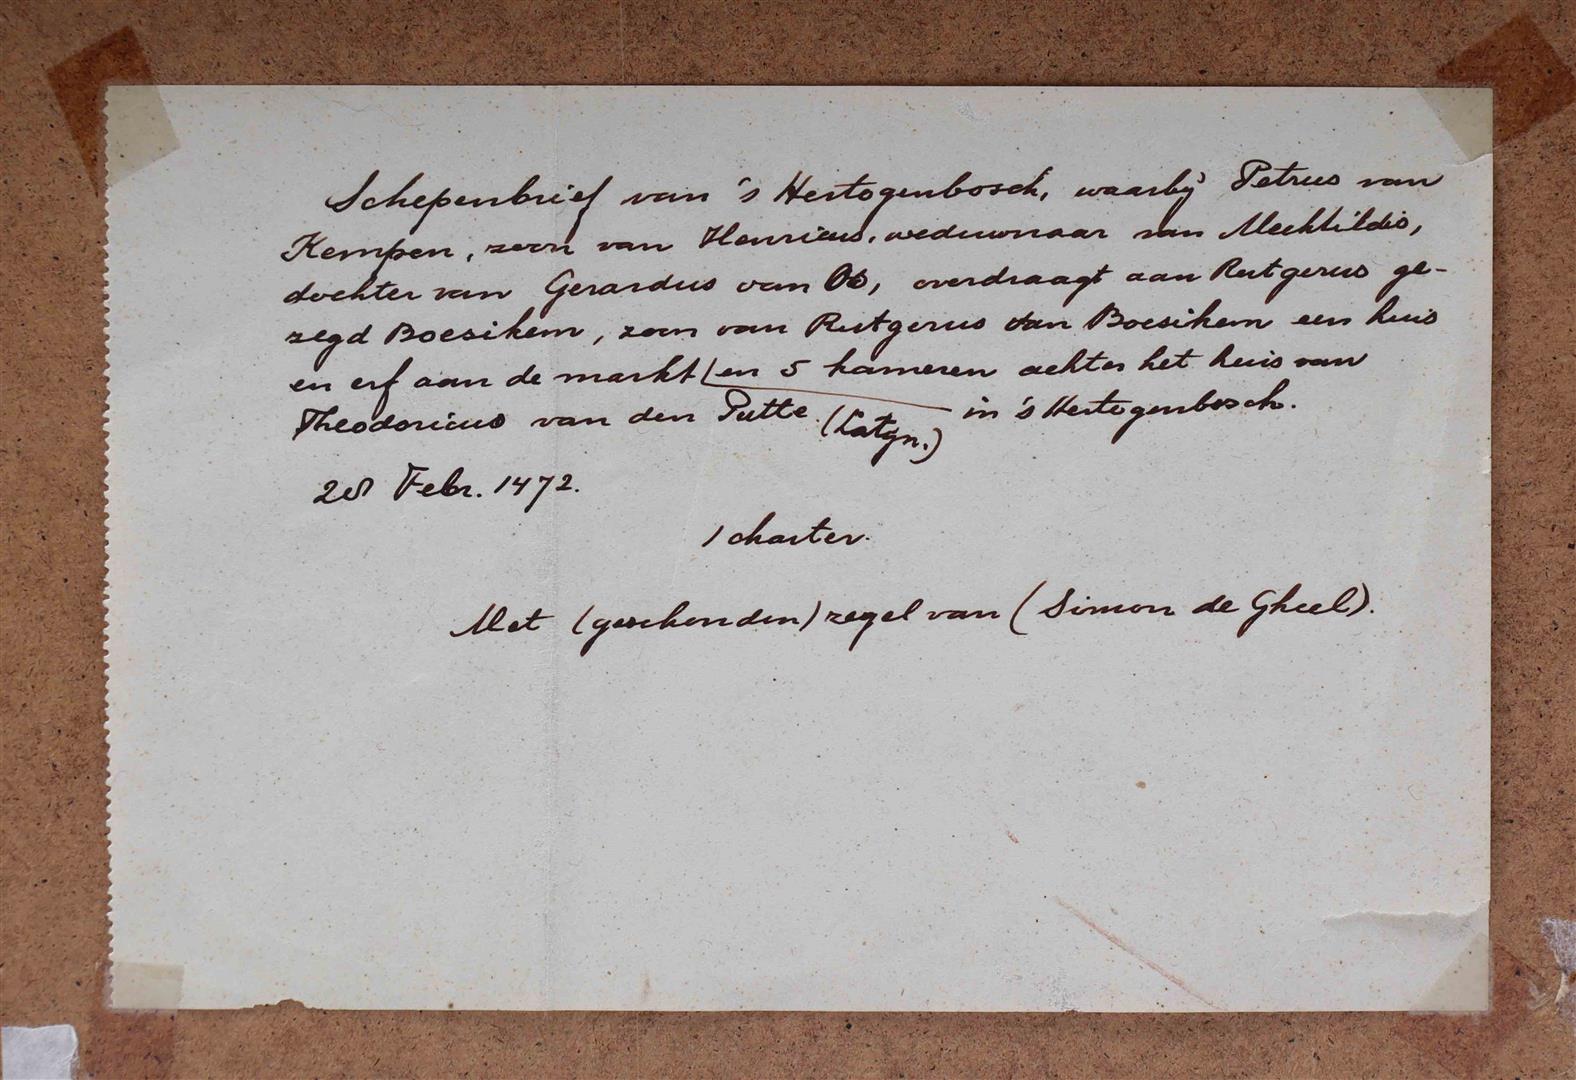 Schepenbrief van 's Hertogenbosch, waarbij Petrus van
Kempen, zoon van Henricus, weduwnaar van Mechtildis,
dochter van Gerardus van Os, overdraagt aan Rutgerus ge-
zegd Boesikem, zoon van Rutgerus van Boesikem een huis
en erf aan de markt en 5 kameren achter het huis van
Theodoricus van den Putte in 's Hertogenbosch.
(Latijn.)
28 Febr. 1472.
1 charter.
Met (geschonden) zegel van (Simon de Gheel).